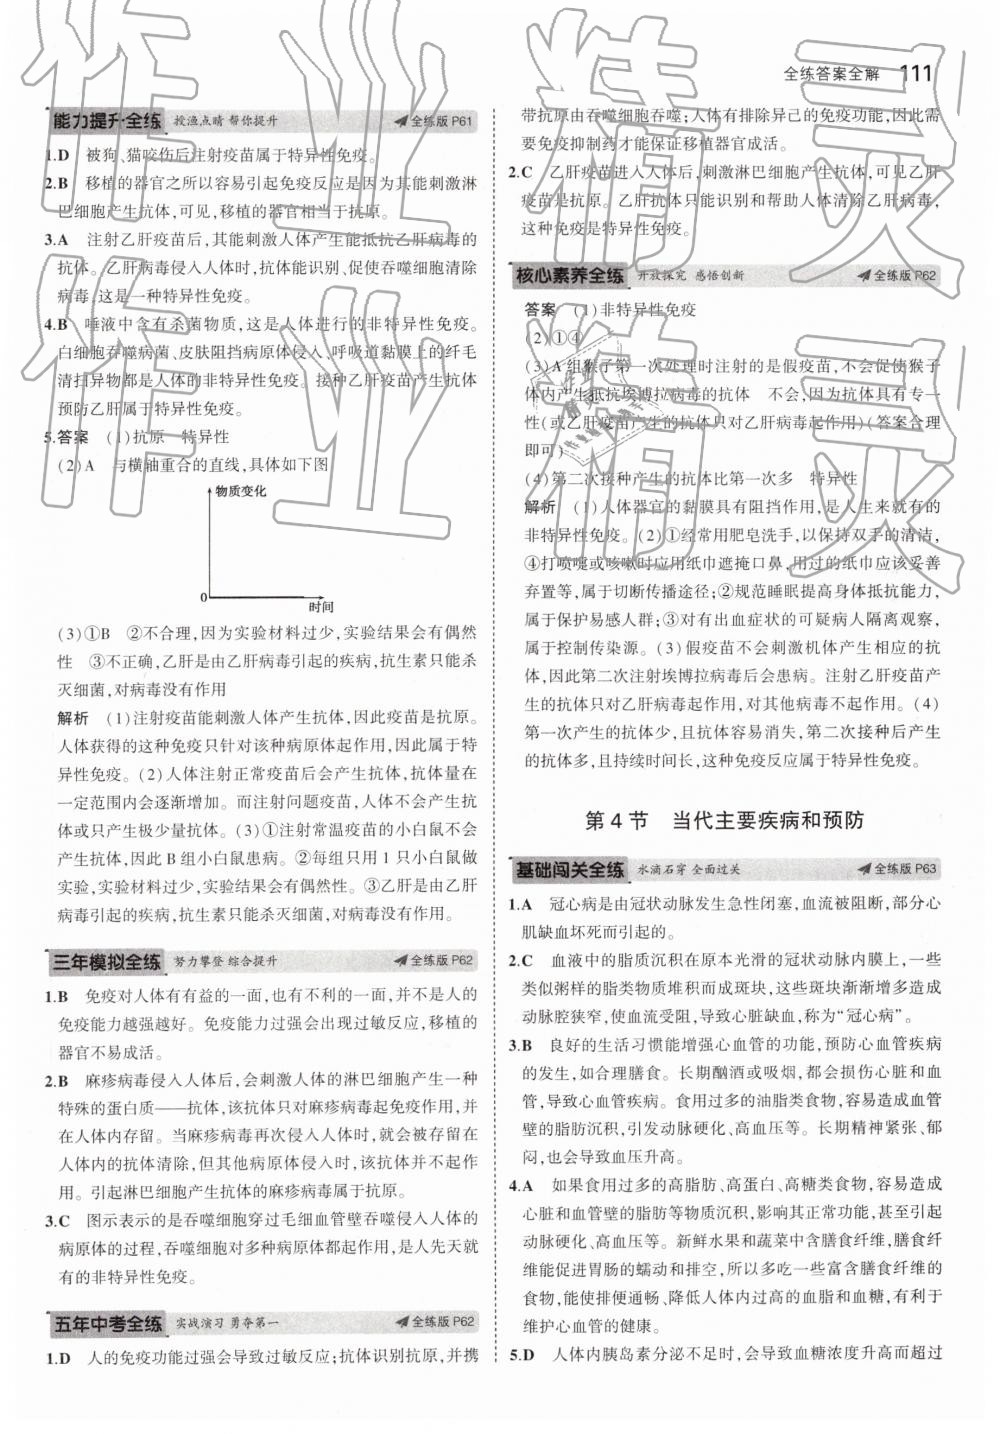 全练答案全解 111
能力提升全练 授渔点睛 帮你提升 全练版 P61
1.D 被狗、猫咬伤后注射疫苗属于特异性免疫。
2.B 移植的器官之所以容易引起免疫反应是因为其能刺激淋
巴细胞产生抗体,可见,移植的器官相当于抗原。
3.A 注射乙肝疫苗后,其能刺激人体产生能抵抗乙肝病毒的
抗体。乙肝病毒侵入人体时,抗体能识别、促使吞噬细胞清除
病毒,这是一种特异性免疫。
4.B 唾液中含有杀菌物质,这是人体进行的非特异性免疫。
白细胞吞噬病菌、皮肤阻挡病原体侵入、呼吸道黏膜上的纤毛
清扫异物都是人体的非特异性免疫。接种乙肝疫苗产生抗体
预防乙肝属于特异性免疫。
5.答案 (1)抗原 特异性
(2)A 与横轴重合的直线,具体如下图
物质变化
0
时间
(3)①B ②不合理,因为实验材料过少,实验结果会有偶然
性 ③不正确,乙肝是由乙肝病毒引起的疾病,抗生素只能杀
灭细菌,对病毒没有作用
解析 (1)注射疫苗能刺激人体产生抗体,因此疫苗是抗原。
人体获得的这种免疫只针对该种病原体起作用,因此属于特
异性免疫。(2)人体注射正常疫苗后会产生抗体,抗体量在
一定范围内会逐渐增加。而注射问题疫苗,人体不会产生抗
体或只产生极少量抗体。(3)①注射常温疫苗的小白鼠不会
产生抗体,因此 B 组小白鼠患病。②每组只用 1 只小白鼠做
实验,实验材料过少,实验结果会有偶然性。③乙肝是由乙肝
病毒引起的疾病,抗生素只能杀灭细菌,对病毒没有作用。
三年模拟全练 努力攀登 综合提升 全练版 P62
1.B 免疫对人体有有益的一面,也有不利的一面,并不是人的
免疫能力越强越好。免疫能力过强会出现过敏反应,移植的
器官不易成活。
2.B 麻疹病毒侵入人体后,会刺激人体的淋巴细胞产生一种
特殊的蛋白质——抗体,该抗体只对麻疹病毒起免疫作用,并
在人体内存留。当麻疹病毒再次侵入人体时,就会被存留在
人体内的抗体清除,但其他病原体侵入时,该抗体并不起作
用。引起淋巴细胞产生抗体的麻疹病毒属于抗原。
3.C 图示表示的是吞噬细胞穿过毛细血管壁吞噬侵入人体的
病原体的过程,吞噬细胞对多种病原体都起作用,是人先天就
有的非特异性免疫。
五年中考全练 实战演习 勇夺第一 全练版 P62
1.D 人的免疫功能过强会导致过敏反应;抗体识别抗原,并携
带抗原由吞噬细胞吞噬;人体有排除异己的免疫功能,因此需
要免疫抑制药才能保证移植器官成活。
2.C 乙肝疫苗进入人体后,刺激淋巴细胞产生抗体,可见乙肝
疫苗是抗原。乙肝抗体只能识别和帮助人体清除乙肝病毒,
这种免疫是特异性免疫。
核心素养全练 开放探究 感悟创新 全练版 P62
答案 (1)非特异性免疫
(2)①④
(3)A 组猴子第一次处理时注射的是假疫苗,不会促使猴子
体内产生抵抗埃博拉病毒的抗体 不会,因为抗体具有专一
性(或乙肝疫苗产生的抗体只对乙肝病毒起作用)(答案合理
即可)
(4)第二次接种产生的抗体比第一次多 特异性
解析 (1)人体器官的黏膜具有阻挡作用,是人生来就有的
非特异性免疫。(2)①经常用肥皂洗手,以保持双手的清洁,
④打喷嚏或咳嗽时应用纸巾遮掩口鼻,用过的纸巾应该妥善
弃置等,属于切断传播途径;②规范睡眠提高身体抵抗能力,
属于保护易感人群;③对有出血症状的可疑病人隔离观察,
属于控制传染源。(3)假疫苗不会刺激机体产生相应的抗
体,因此第二次注射埃博拉病毒后会患病。注射乙肝疫苗产
生的抗体只对乙肝病毒起作用,对其他病毒不起作用。(4)
第一次产生的抗体少,且抗体容易消失,第二次接种后产生
的抗体多,且持续时间长,这种免疫反应属于特异性免疫。
第 4 节 当代主要疾病和预防
基础闯关全练 水滴石穿 全面过关 全练版 P63
1.A 冠心病是由冠状动脉发生急性闭塞,血流被阻断,部分心
肌缺血坏死而引起的。
2.C 血液中的脂质沉积在原本光滑的冠状动脉内膜上,一些
类似粥样的脂类物质堆积而成斑块,这些斑块渐渐增多造成
动脉腔狭窄,使血流受阻,导致心脏缺血,称为“冠心病”。
3.B 良好的生活习惯能增强心血管的功能,预防心血管疾病
的发生,如合理膳食。长期酗酒或吸烟,都会损伤心脏和血
管,导致心血管疾病。食用过多的油脂类食物,容易造成血管
壁的脂肪沉积,引发动脉硬化、高血压等。长期精神紧张、郁
闷,也会导致血压升高。
4.A 如果食用过多的高脂肪、高蛋白、高糖类食物,容易造成
心脏和血管壁的脂肪等物质沉积,影响其正常功能,甚至引起
动脉硬化、高血压等。新鲜水果和蔬菜中含膳食纤维,膳食纤
维能促进胃肠的蠕动和排空,所以多吃一些富含膳食纤维的
食物,能使排便通畅、降低人体内过高的血脂和血糖,有利于
维护心血管的健康。
5.D 人体内胰岛素分泌不足时,会导致血糖浓度升高而超过
作业精灵
作业精灵